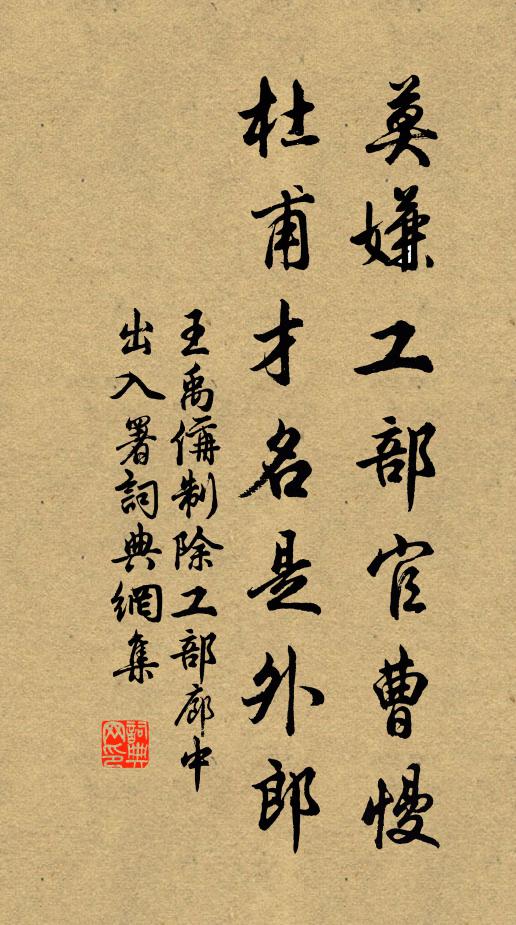 莫嫌工部官曹慢
杜甫才名是外郎
王禹偁制除工部郎中
出入署詞典網集
詞典网印